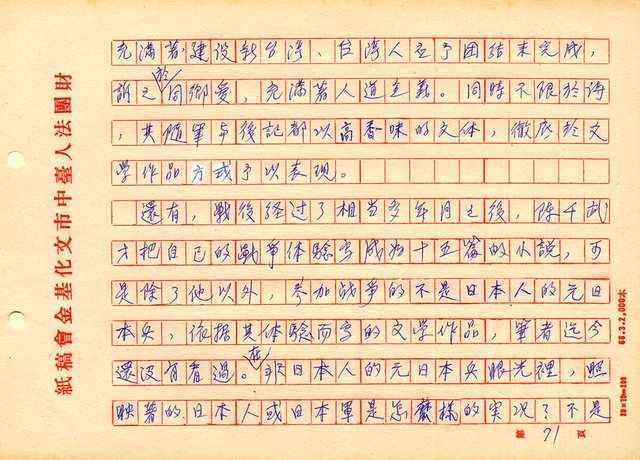 充滿著建设新台湾、台湾人应予团结来完成,
訴之於同鄉愛,充滿著人道主義。同時不限於诗
,其随筆与後記都以高香味的文体,徹底於文
學作品方式予以表现。
還有,戰後経过了相当多年月之後,陳千武
才把自己的戰爭体験写成为十五篇的小說,可
是除了他以外,参加战争的不是日本人的元日
本兵,依据其体験而写的文学作品,筆者迄今
還没有看過。在非日本人的元日本兵眼光裡,照
映著的日本人或日本軍是怎麼樣的实况?不是
第 71 頁
財團法人臺中市文化基金會稿紙
68.3.2,000本
20×10=200